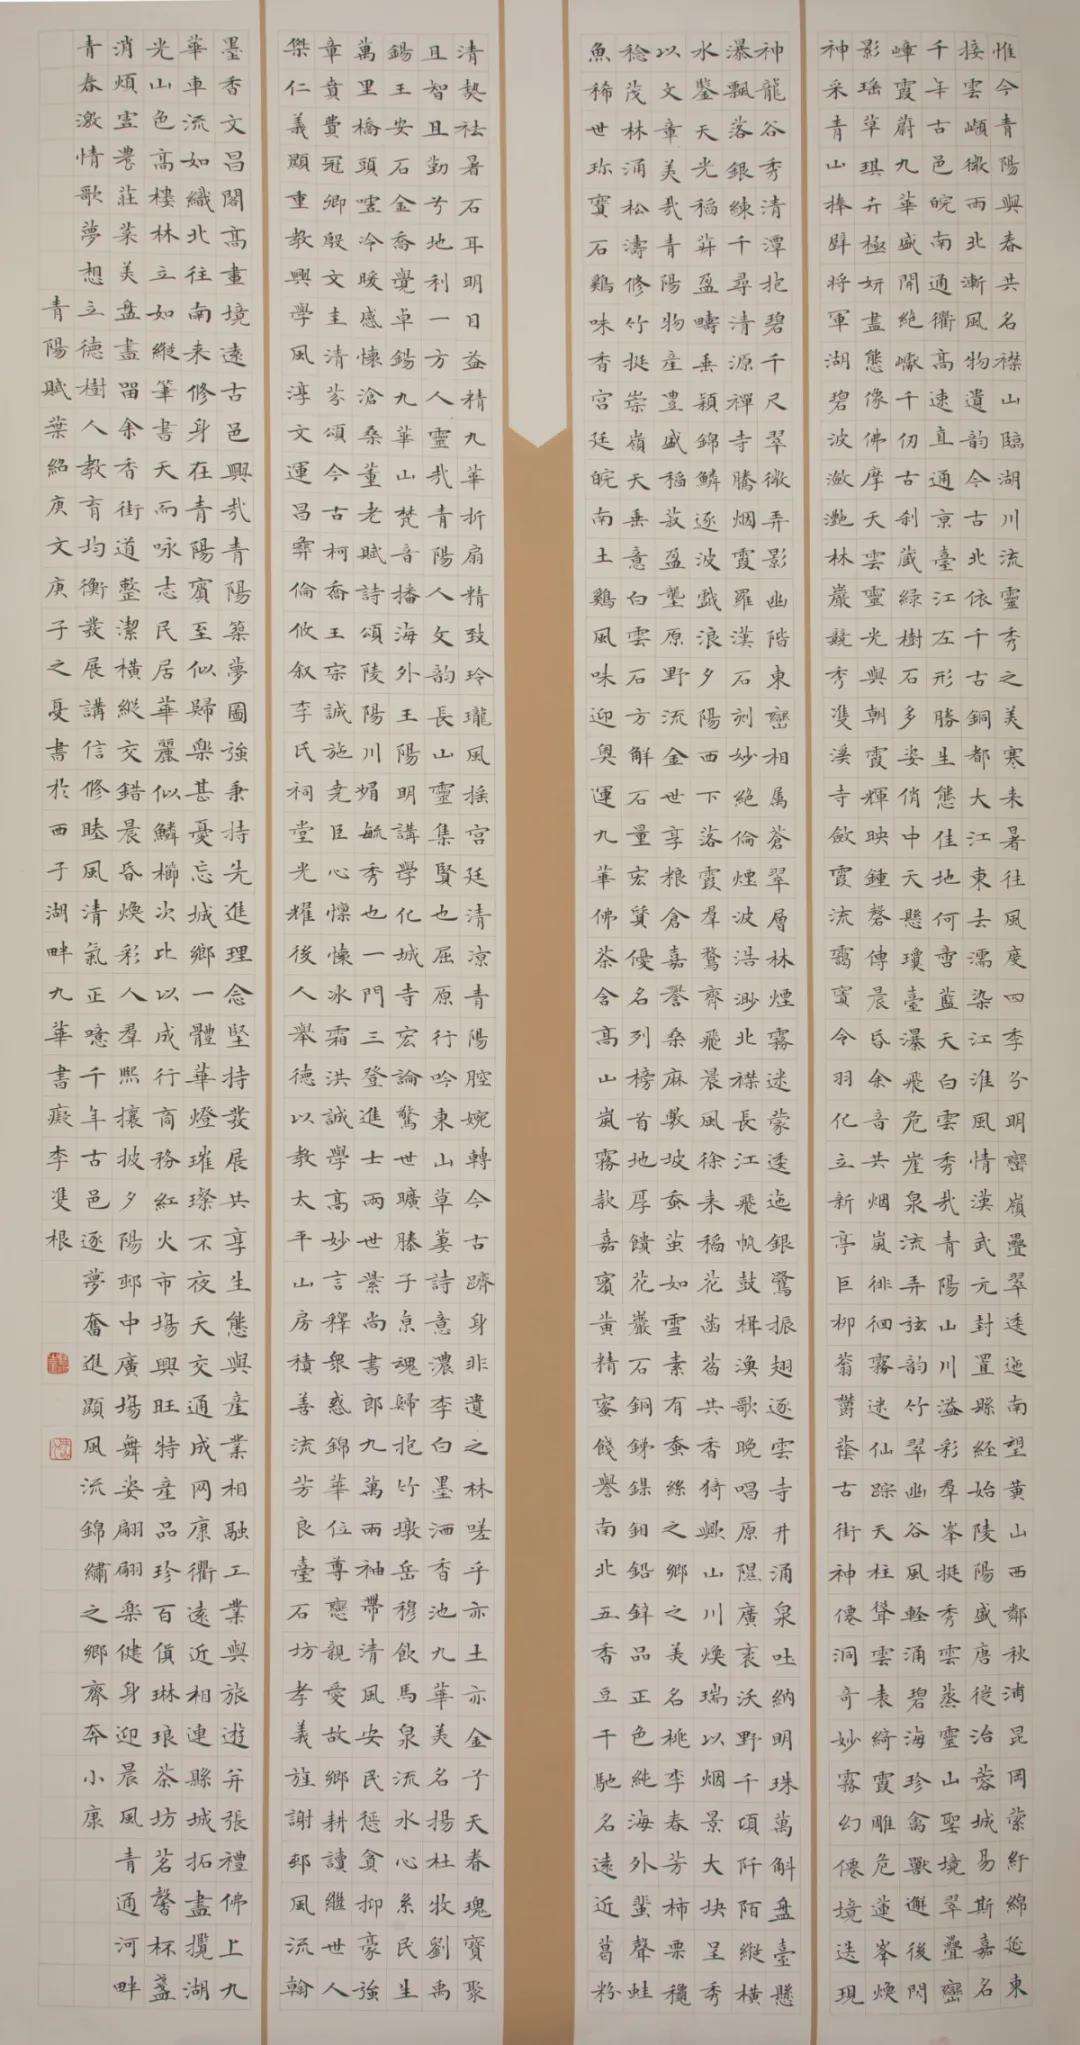 惟今青陽與春共名襟山臨湖川流靈秀之美寒来暑往風度四季分明巒嶺疊翠逶迤南望黄山西鄰秋浦昆岡縈紆綿延東
接雲巔微雨北漸風物遺韵今古北依千古銅都大江東去濡染江淮風情漢武元封置縣經始陵陽盛唐徙治蓉城易斯嘉名
千年古邑皖南通衢高速直通京臺江左形勝生態佳地何啻藍天白雲秀哉青陽山川溢彩羣峯挺秀雲蒸靈山聖境翠疊巒
嶂霞蔚九華盛開絶巘千仞古刹蔵緑樹石多姿俏中天懸瓊臺瀑飛危崖泉流弄弦韵竹翠幽谷風軽涌碧海珍禽獸邂後閃
影瑶草琪卉極妍盡態像佛摩天雲靈光與朝霞輝映鍾磬傳晨昏余音共烟嵐徘徊霧迷仙踪天柱聳雲表綺霞雕危蓮峯煥
神采青山捧屏將軍湖碧波瀲灧林巖競秀雙溪寺斂霞流靄寳令羽化立新亭巨柳蓊欝蔭古街神僊洞奇妙霧幻僊境迭現
神龍谷秀清潭抱碧千尺翠微弄影幽階東巒相属蒼翠層林煙霧迷蒙逶迤銀鷺振翅逐雲寺井涌泉吐納明珠萬斛盘臺懸
瀑飄落銀練千尋清源禪寺騰烟霞羅漢石刻妙絶倫煙波浩渺北襟長江飛帆鼓楫漁歌晚唱原隰廣袤沃野千頃阡陌縱横
水鑒天光稻菽盈疇垂穎錦鱗逐波戯浪夕陽西下落霞羣鶩齊飛晨風徐来稲花菡萏共香猗歟山川煥瑞以烟景大块呈秀
以文章美哉青陽物産豊盛稲菽盈壟原野流金世享粮倉嘉譽桑麻敷坡蚕茧如雪素有蚕絲之鄉之美名桃李春芳柿栗穐
稔茂林涌松濤修竹挺崇嶺天垂意白雲石方解石量宏質優名列榜首地厚饋花巖石銅銻鎂鉬鉛鋅品正色純海外蜚聲蛙
魚稀世珎寳石鷄味香宫廷皖南土鷄風味迎奥運九華佛茶含高山嵐霧款嘉賓黄精蜜餞譽南北五香豆干馳名遠近葛粉
清熱祛暑石耳明目益精九華折扇精致玲瓏風揺宫廷清凉青陽腔婉轉今古躋身非遺之林嗟乎亦土亦金子天春瑰寳聚
且智且勤兮地利一方人靈哉青陽人文韵長山靈集賢也屈原行吟東山草萋詩意濃李白墨洒香池九華美名揚杜牧劉禹
錫王安石金喬覺卓錫九華山梵音播海外王陽明講學化城寺宏論驚世曠滕子京魂歸抱竹墩岳穆飲馬泉流水心系民生
萬里橋頭噓冷暖感懷滄桑董老賦詩頌陵陽川媚毓秀也一門三登進士兩世業尚書郎九萬兩袖帶清風安民懲貪抑豪強
章賁費冠卿殷文圭清芬頌今古柯喬王宗誠施尭臣心懍懍冰霜洪誠學高妙言釋衆惑錦華位尊戀親愛故鄉耕讀繼世人
傑仁義顯重教興學風淳文運昌彝倫攸叙李氏祠堂光耀後人舉德以教太平山房積善流芳良臺石坊孝義旌謝邨風流翰
墨香文昌閣高畫境遠古邑興哉青陽築夢圖強秉持先進理念堅持發展共享生態與產業相融工業與旅遊并張禮佛上九
華車流如織北往南来修身在青陽賓至似歸樂甚憂忘城鄉一體華燈璀璨不夜天交通成网康衢遠近相連縣城拓盡攬湖
光山色高樓林立如縱筆書天而咏志民居華麗似鱗櫛次比以成行商務紅火市場興旺特產品珍百貨琳琅茶坊茗馨杯盞
消煩農莊菜美盘盡留余香街道整潔横縱交錯晨昏煥彩人羣熙攘披夕陽邨中廣場舞姿翩翩樂健身迎晨風青通河畔
青春激情歌夢想立德樹人教育均衡發展講信修睦風清氣正憶千年古邑逐夢奮進顕風流錦繡之鄉齊奔小康
青陽賦葉紹庚文庚子之夏書於西子湖畔九華書癡李雙根